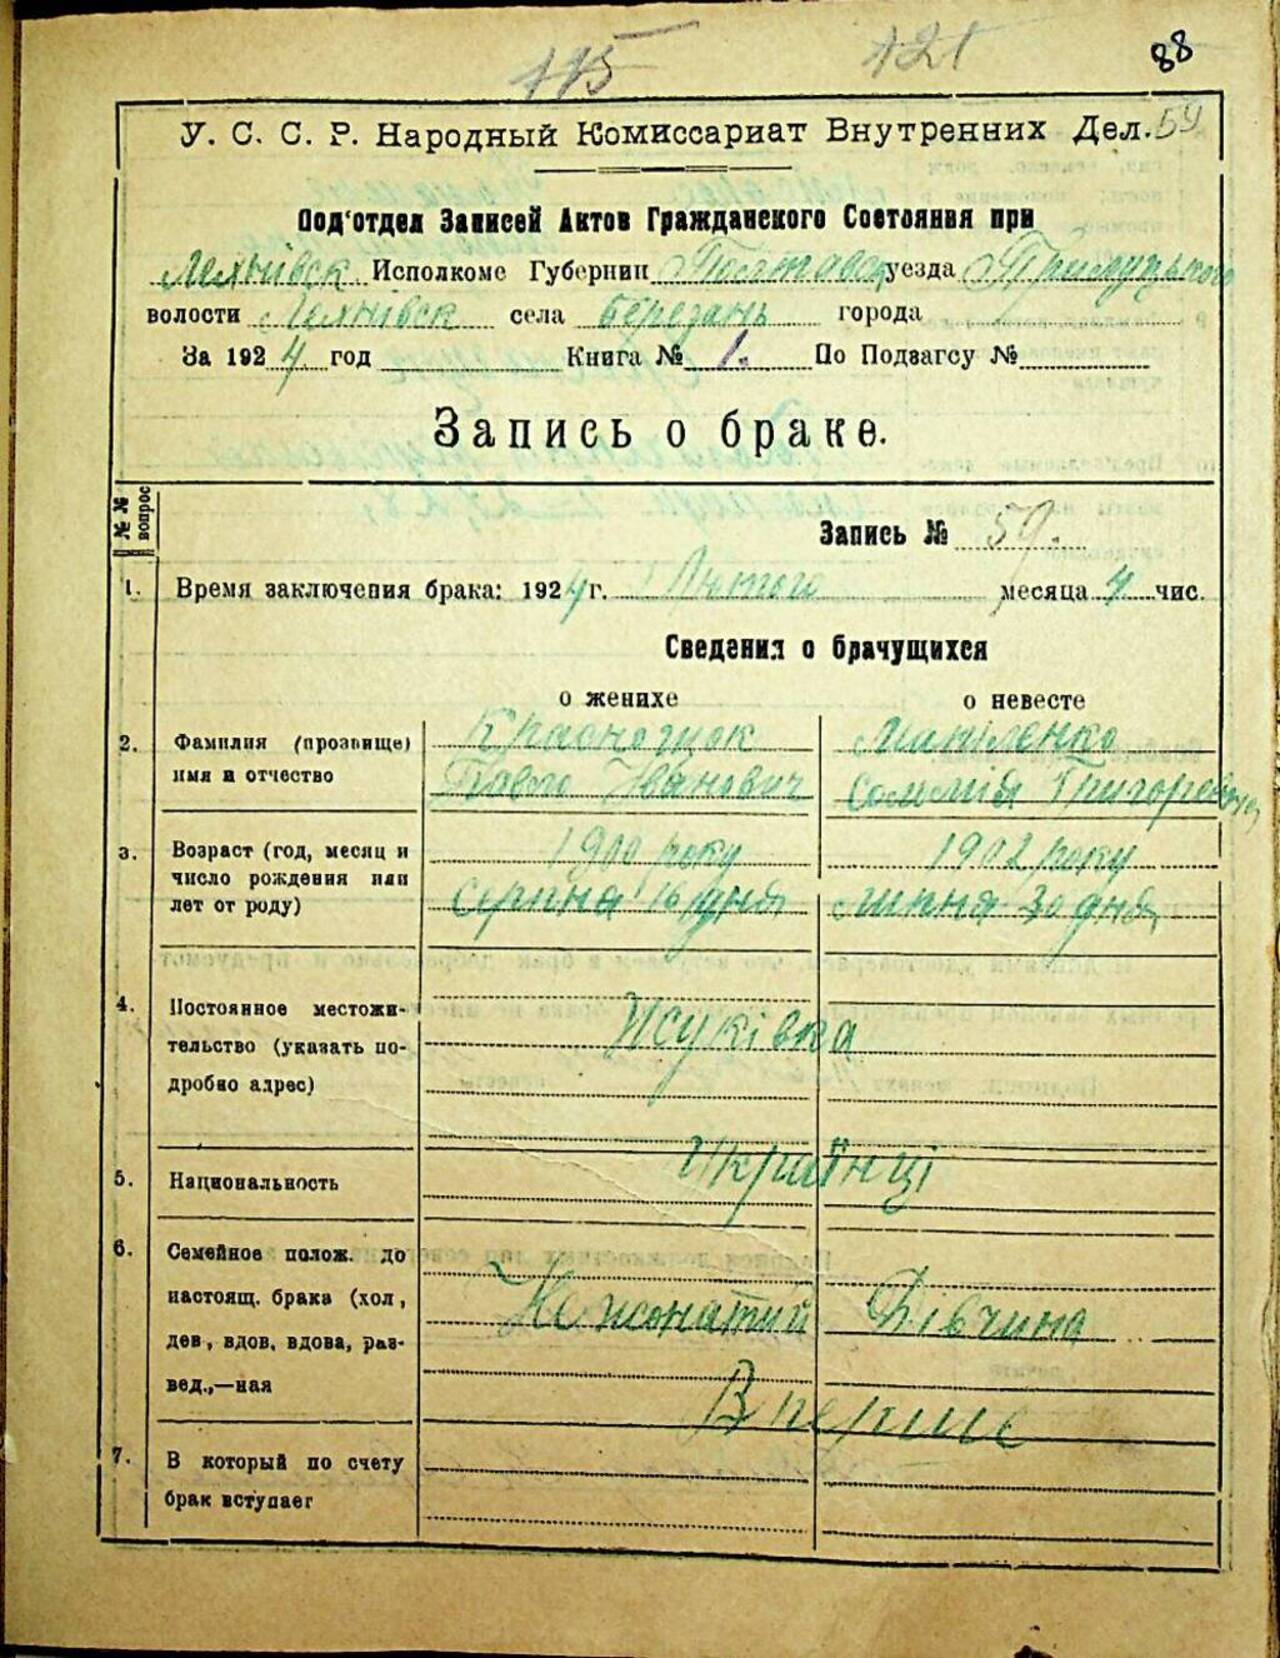 115 121 88
У. С. С. Р. Народный Комиссариат Внутренних Дел. 59
Под'отдел Записей Актов Гражданского Состояния при
Исполкоме Губернии Полтавск уезда Прилуцького
волости села Березань города
За 1924 год Книга № 1. По Подзагсу №
Запись о браке.
№№ вопрос
Запись № 59.
1. Время заключения брака: 1924 г. Лютого месяца 4 чис.
Сведения о брачущихся
о женихе о невесте
2. Фамилия (прозвище) имя и отчество
Красножок
Павло Іванович
Соломія Григоревна
3. Возраст (год, месяц и число рождения или лет от роду)
1900 року 1902 року
Серпня 16 дня липня 30 дня
4. Постоянное местожительство (указать подробно адрес)
Жуківка
5. Национальность
Українці
6. Семейное полож. до настоящ. брака (хол, дев, вдов, вдова, развед.,—ная
Не жонатий Дівчина
Вперше
7. В который по счету брак вступает